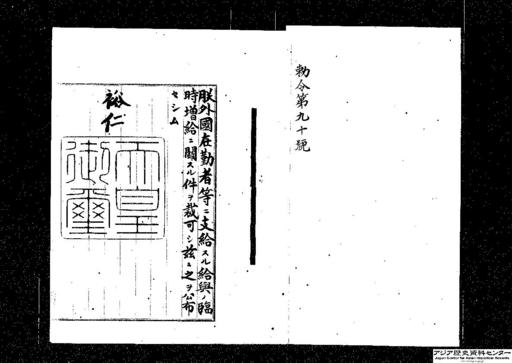 勅令第九十號
朕外國在勤者等ニ支給スル給與ノ臨
時增給ニ關スル件ヲ裁可シ茲ニ之ヲ公布
セシム
裕仁
天皇
御璽
アジア歴史資料センター
Japan Center for Asian Historical Records